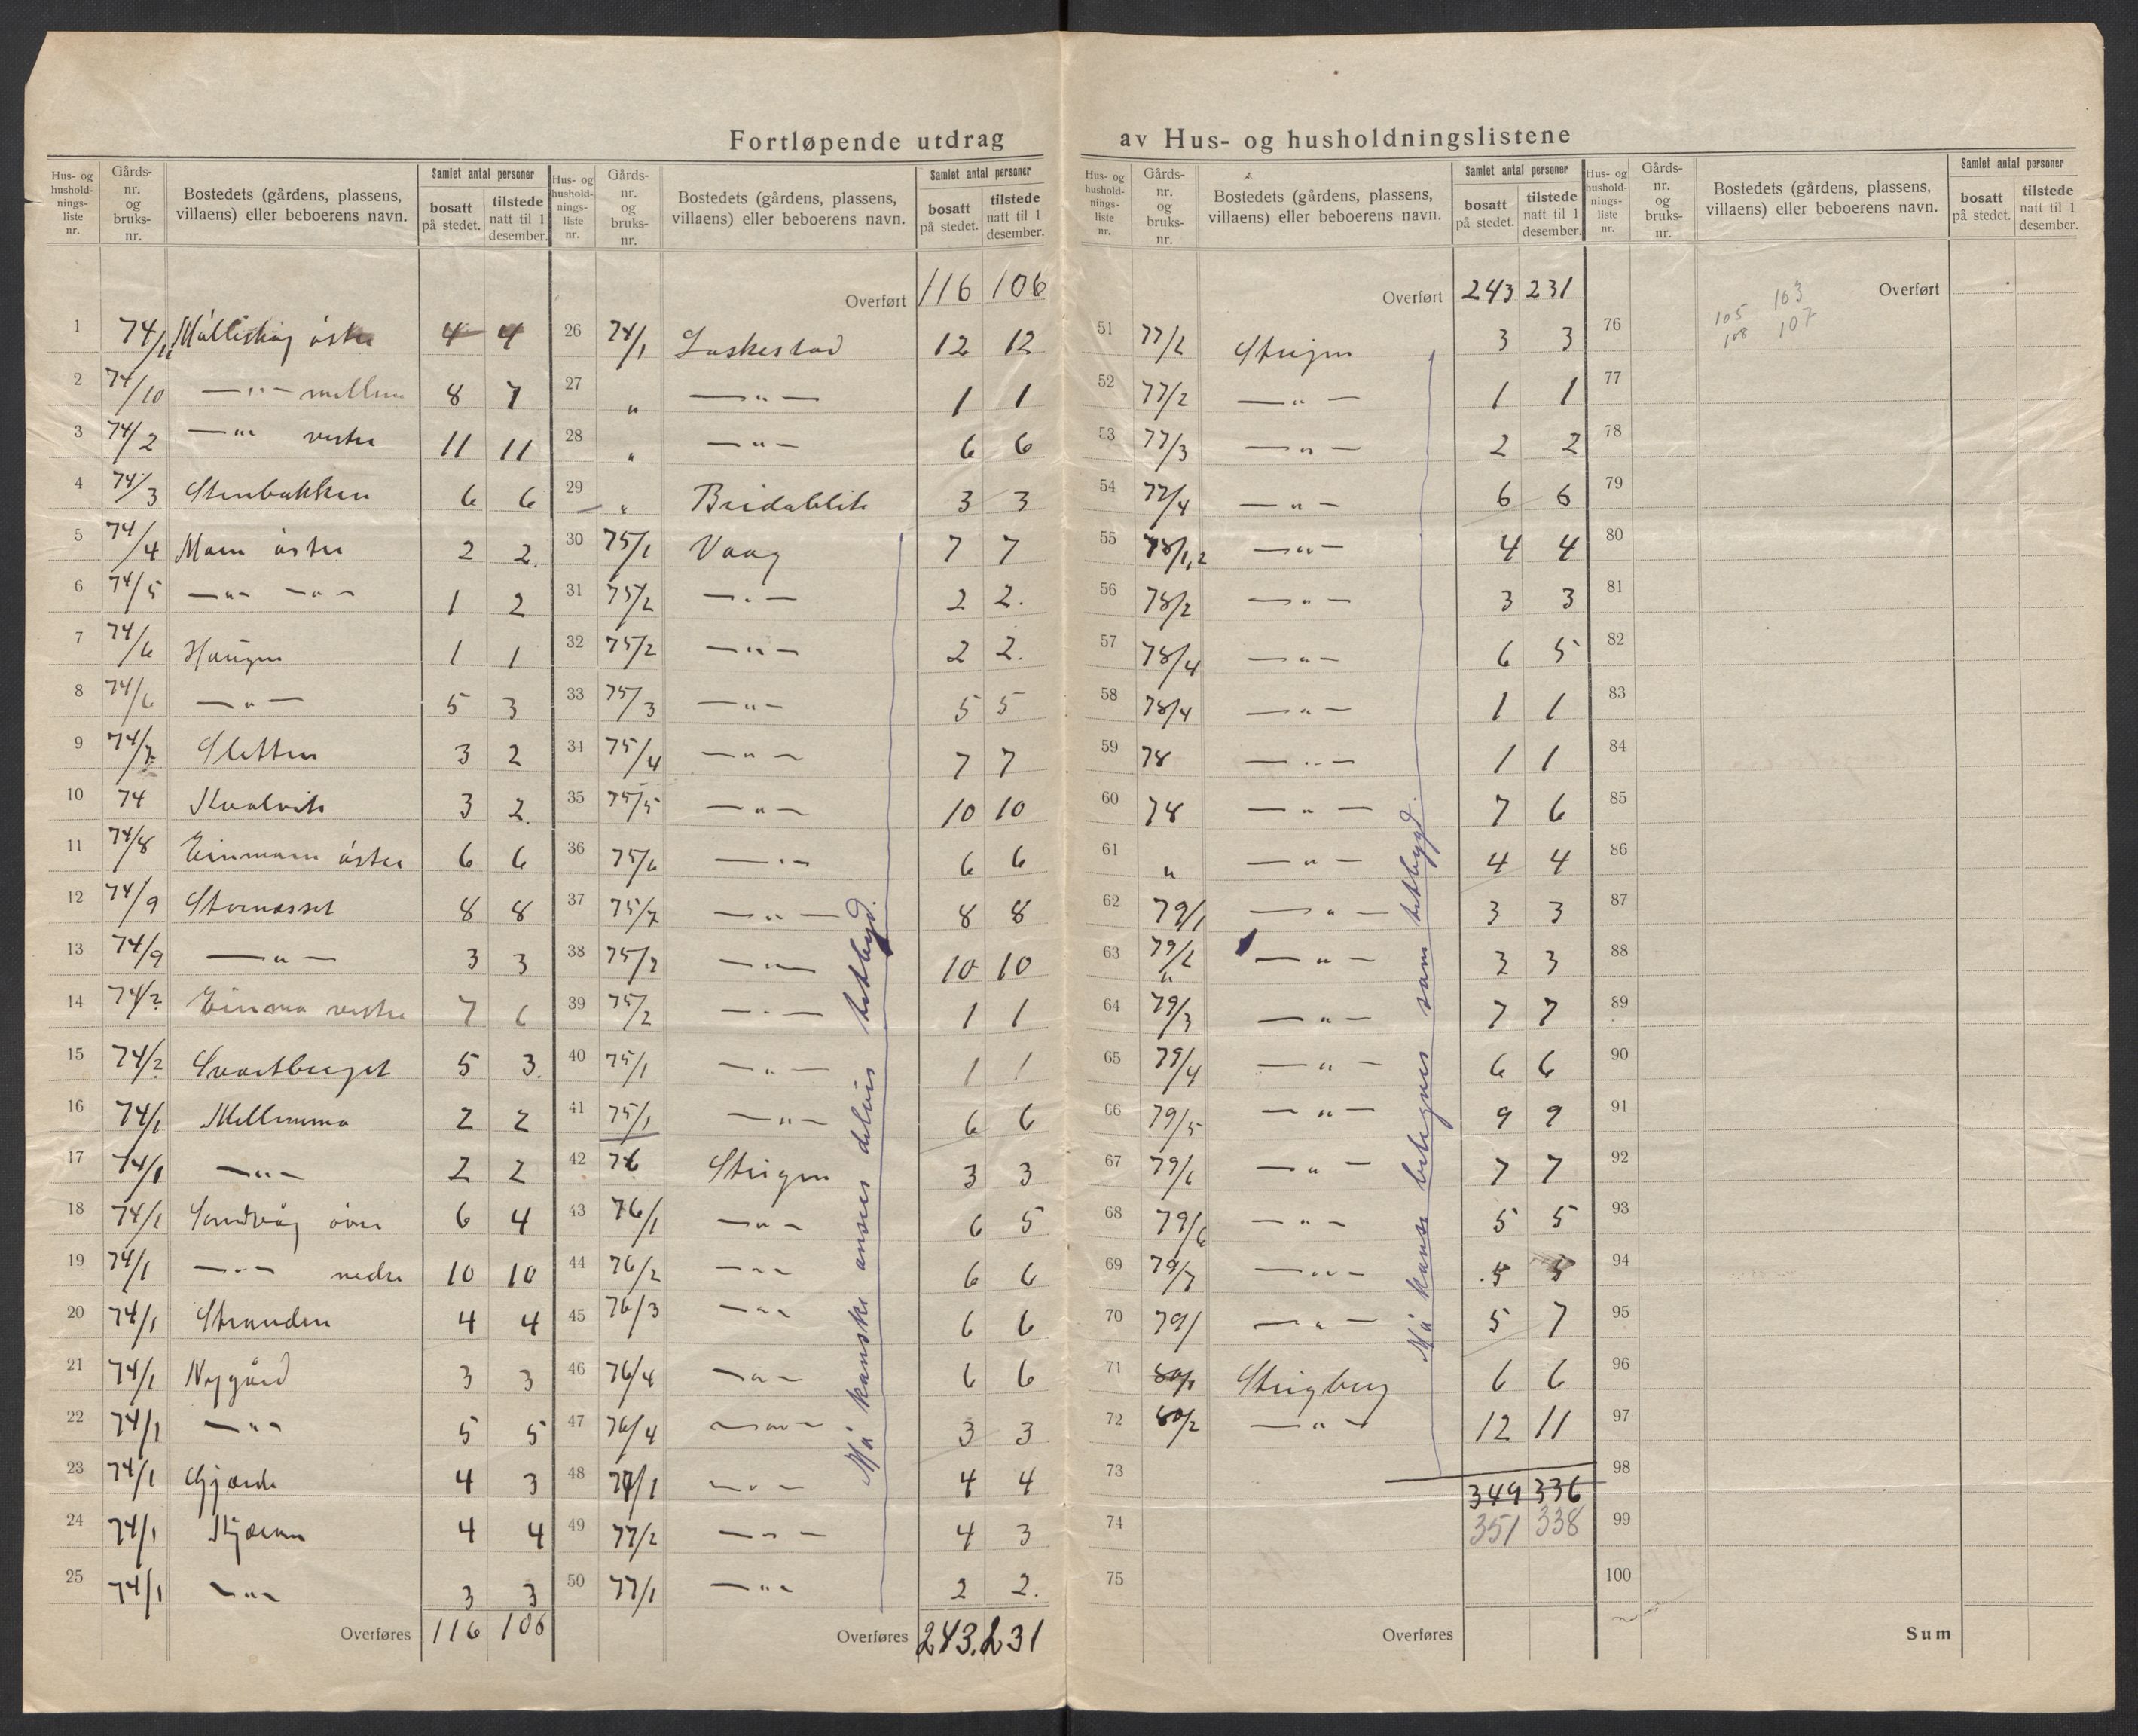 Fortløpende utdrag av Hus- og husholdningslistene
Hus- og husholdnings-liste nr. | Gårds-nr. og bruks-nr. | Bostedets (gårdens, plassens, villaens) eller beboerens navn. | Samlet antal personer | bosatt på stedet. | tilstede natt til 1 desember.
1 74/11 østre 4 4
2 74/10 —"— mellem 8 7
3 74/2 —"— vestre 11 11
4 74/3 Stenbakken 6 6
5 74/4 Moen østre 2 2.
6 74/5 —"— —"— 1 2
7 74/6 Haugen 1 1
8 74/6 —"— 5 3
9 74/7 Sletten 3 2
10 74 Kvalvik 3 2.
11 74/8 Einmoen østre 6 6
12 74/9 Stornesset 8 8
13 74/9 —"— 3 3
14 74/2 Einmo vestre 7 6
15 74/2 Svartberget 5 3.
16 74/1 Mellemmo 2 2
17 74/1 —"— 2 2
18 74/1 Sandvåg øvre 6 4
19 74/1 —"— nedre 10 10
20 74/1 Stranden 4 4
21 74/1 Nygård 3 3
22 74/1 —"— 5 5
23 74/1 Gjærde 4 3
24 74/1 4 4
25 74/1 —"— 3 3
Overføres 116 106
Hus- og husholdnings-liste nr. | Gårds-nr. og bruks-nr. | Bostedets (gårdens, plassens, villaens) eller beboerens navn. | Samlet antal personer | bosatt på stedet. | tilstede natt til 1 desember.
Overført 116 106
26 74/1 Laskestad 12 12
27 " —"— 1 1
28 " —"— 6 6
29 " Breidablik 3 3
30 75/1 Vaag 7 7
31 75/2 —"— 2 2.
32 75/2 —"— 2 2.
33 75/3 —"— 5 5
34 75/4 —"— 7 7
35 75/5 —"— 10 10
36 75/6 —"— 6 6
37 75/7 —"— 8 8
38 75/7 —"— 10 10
39 75/2 —"— 1 1
40 75/1 —"— 1 1
41 75/1 —"— 6 6
42 76 Steigen 3 3
43 76/1 —"— 6 5
44 76/2 —"— 6 6
45 76/3 —"— 6 6
46 76/4 —"— 6 6
47 76/4 —"— 3 3
48 77/1 —"— 4 4
49 77/2 —"— 4 3
50 77/1 —"— 2 2.
Overføres 243. 231
Må kanske anses delvis tetbygd.
Hus- og husholdnings-liste nr. | Gårds-nr. og bruks-nr. | Bostedets (gårdens, plassens, villaens) eller beboerens navn. | Samlet antal personer | bosatt på stedet. | tilstede natt til 1 desember.
Overført 243 231
51 77/2 Steigen 3 3
52 77/2 —"— 1 1
53 77/3 —"— 2 2
54 77/4 —"— 6 6
55 78/1,2 —"— 4 4
56 78/2 —"— 3 3
57 78/4 —"— 6 5
58 78/4 —"— 1 1
59 78 —"— 1 1
60 78 —"— 7 6
61 " —"— 4 4
62 79/1 —"— 3 3
63 79/2 " —"— 3 3
64 79/3 —"— 7 7
65 79/4 —"— 6 6
66 79/5 —"— 9 9
67 79/6 —"— 7 7
68 79/6 —"— 5 5
69 79/7 —"— 5
70 79/ —"— 5 7
71 80/1 Steigberg 6 6
72 80/2 —"— 12 11
73
349 336
74 351 338
75
Overføres
Må kanse betegnes som tetbygd.
Hus- og husholdnings-liste nr. | Gårds-nr. og bruks-nr. | Bostedets (gårdens, plassens, villaens) eller beboerens navn. | Samlet antal personer | bosatt på stedet. | tilstede natt til 1 desember.
Overført
105 103
108 107
76
77
78
79
80
81
82
83
84
85
86
87
88
89
90
91
92
93
94
95
96
97
98
99
100
Sum